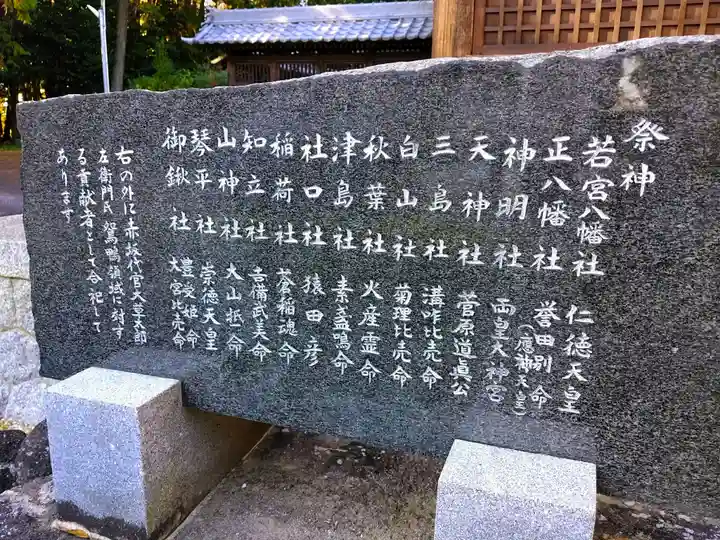 祭神
若宮八幡社 仁徳天皇
正八幡社 誉田別命
(応神天皇)
神明社 両皇大神宮
天神社 菅原道眞公
三島社 溝咋比売命
白山社 菊理比売命
秋葉社 火産霊命
津島社 素盞鳴命
社口社 猿田彦
稲荷社 蒼稲魂命
知立社 吉備武美命
山神社 大山抵命
琴平社 崇徳天皇
御鍬社 豊受姫命
大宮比売命
右の外に赤坂代官大草太郎
左衛門氏 鴛鴨領域に対す
る貢献者として合祀して
あります